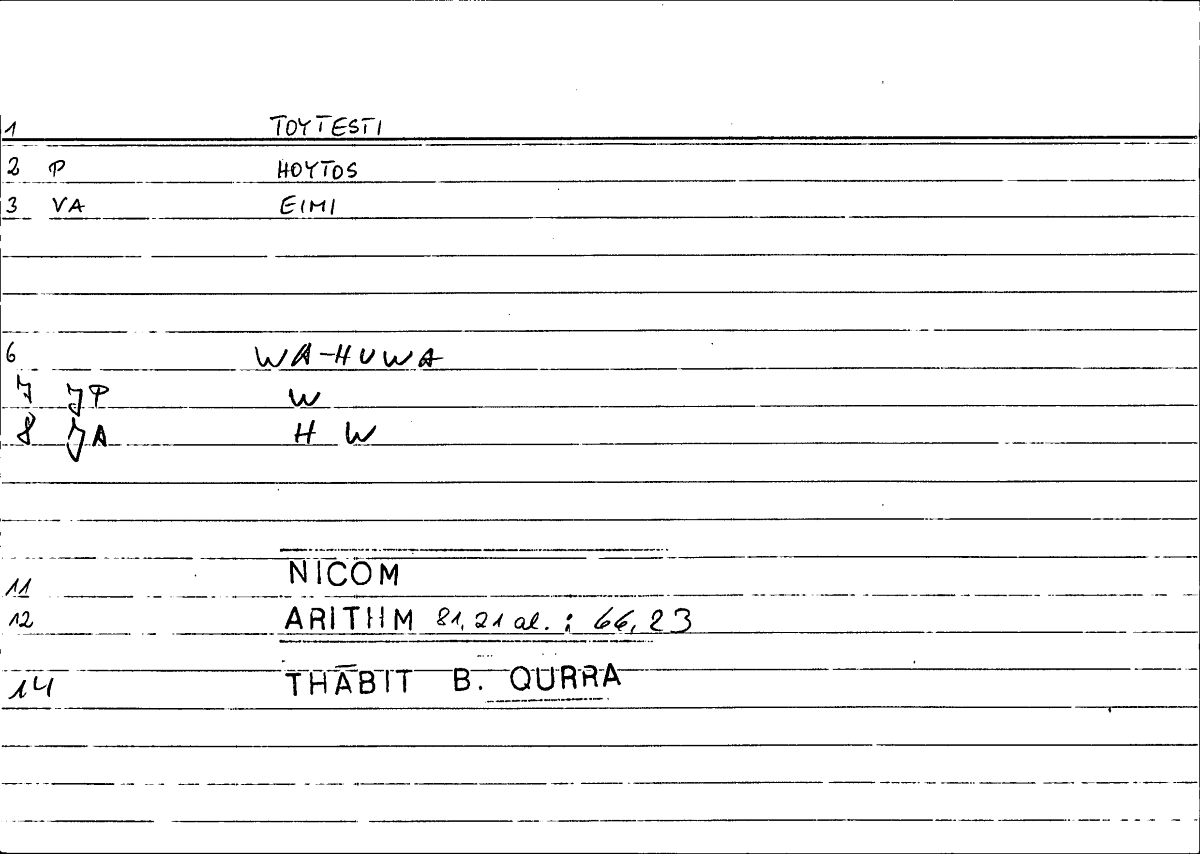 1 TOYTESTI
2 P HOYTOS
3 VA EIMI
6 WA-HUWA
7 JP W
8 JA H W
11 NICOM
12 ARITHM 81,21 al. ; 66,23
14 THĀBIT B. QURRA